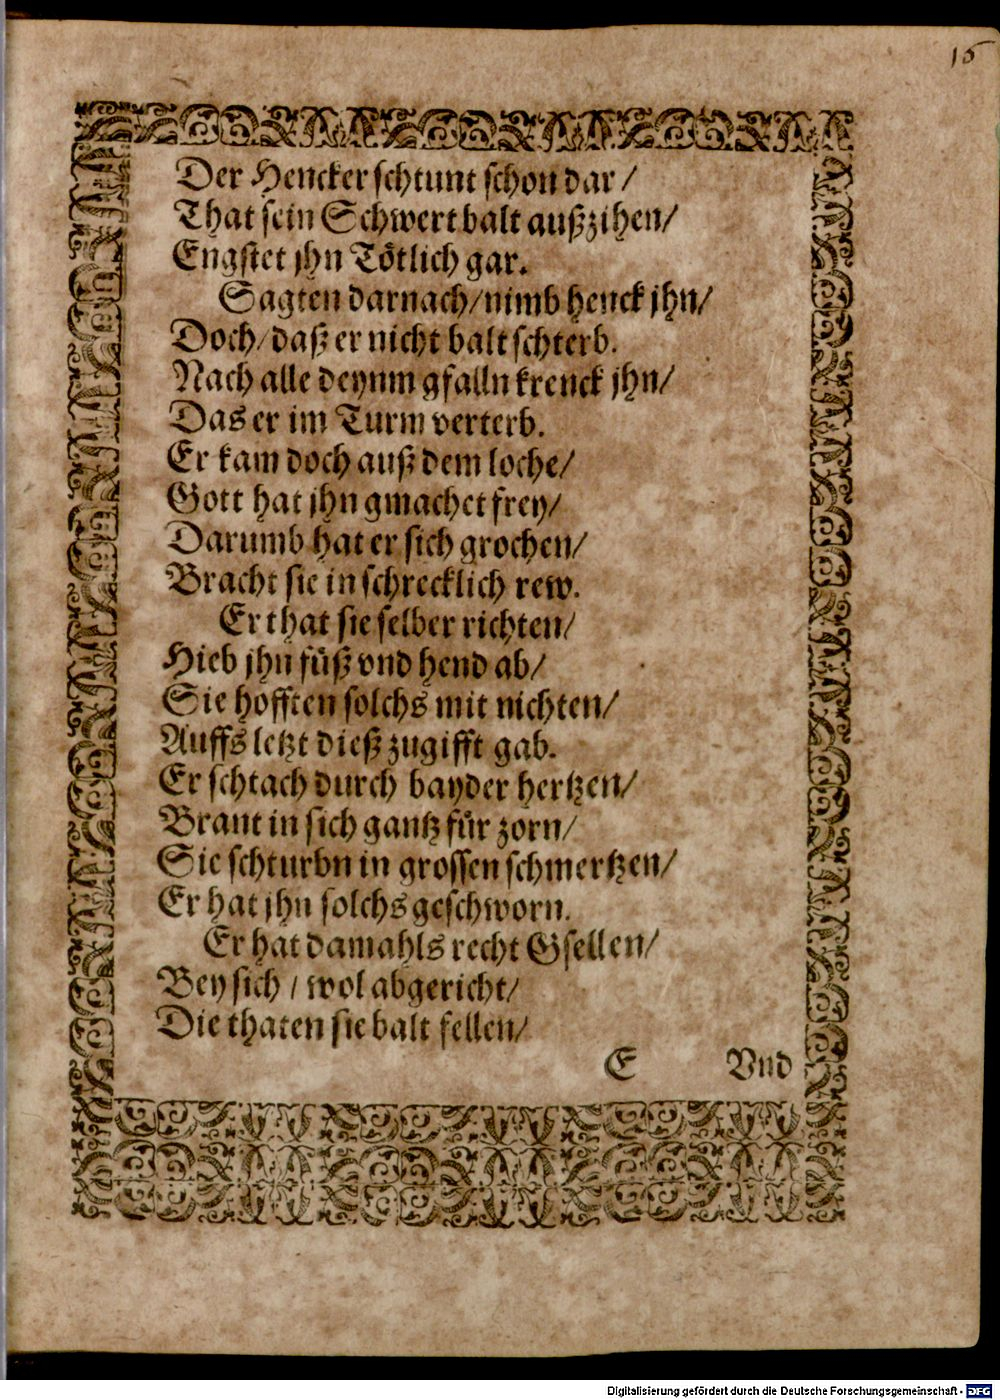 15
Der Hencker schtunt schon dar /
That sein Schwert balt außzihen/
Engstet jhn Toͤtlich gar.
Sagten darnach/nimb henck jhn/
Doch/daß er nicht balt schterb.
Nach alle deynm gfalln krenck jhn/
Das er im Turm verterb.
Er kam doch auß dem loche/
Gott hat jhn gmachet frey/
Darumb hat er sich grochen/
Bracht sie in schrecklich rew.
Er that sie selber richten/
Hieb jhn fuͤß vnd hend ab/
Sie hofften solchs mit nichten/
Auffs letzt dieß zugifft gab.
Er schtach durch bayder hertzen/
Brant in sich gantz fuͤr zorn/
Sie schturbn in grossen schmertzen/
Er hat jhn solchs geschworn.
Er hat damahls recht Gsellen/
Bey sich / wol abgericht/
Die thaten sie balt fellen/
E Vnd
Digitalisierung gefördert durch die Deutsche Forschungsgemeinschaft - DFG